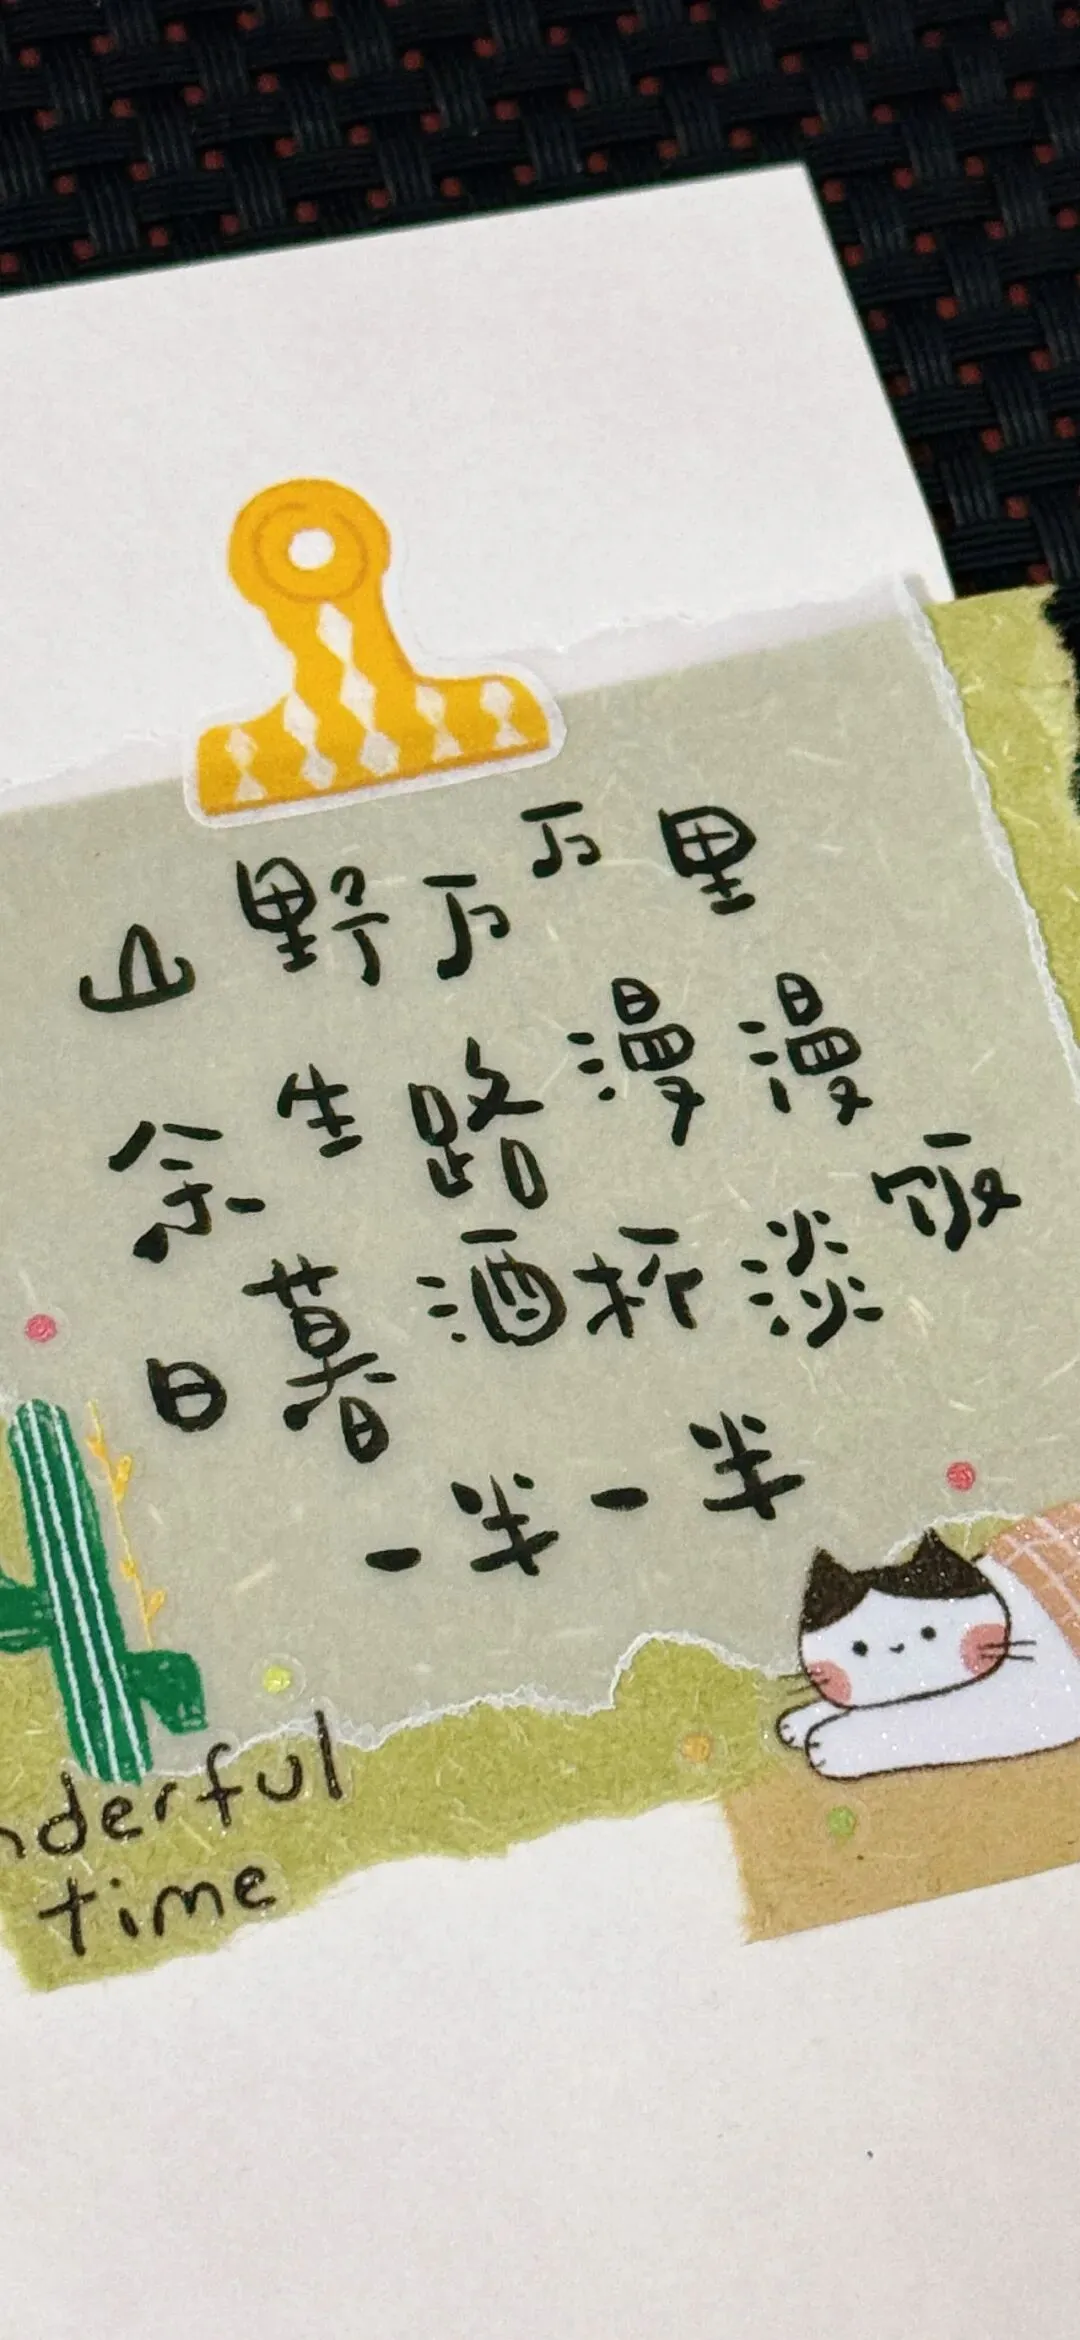 山野万万里
余生路漫漫
日暮酒杯淡饭
一半一半
nderful
time